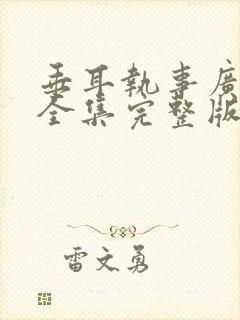 垂耳執事廣
全集完整版
雷文勇